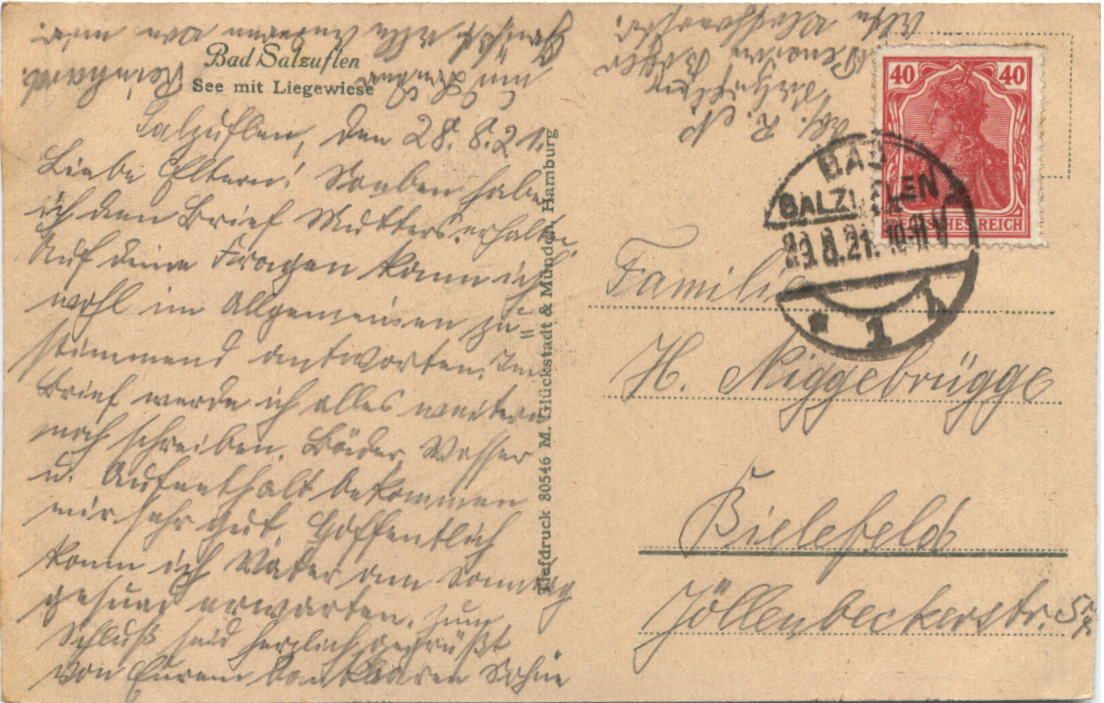 Bad Salzuflen
See mit Liegewiese
Salzuflen, den 28.8.21.
Liebe Eltern! Soeben habe
ich den Brief Mutters erhalten
Auf deine Fragen kann ich
wohl im Allgemeinen zu=
stimmend antworten. Im
Brief werde ich alles weitere
noch schreiben. Bäder Wasser
u. Aufenthalt bekommen
mir sehr gut. Hoffentlich
kann ich Vater am Sonntag
gesund erwarten. Zum
Schluß seid herzlich gegrüßt
von Eurem dankbaren Sohne
Reinhard.
Tiefdruck 80546 M. Glückstadt & Münden, Hamburg
40 40
DEUTSCHES REICH
BAD
SALZUFLEN
29.8.21. 10-11 V
* 1 1
Familie
H. Niggebrügge
Bielefeld
Jöllenbeckerstr.